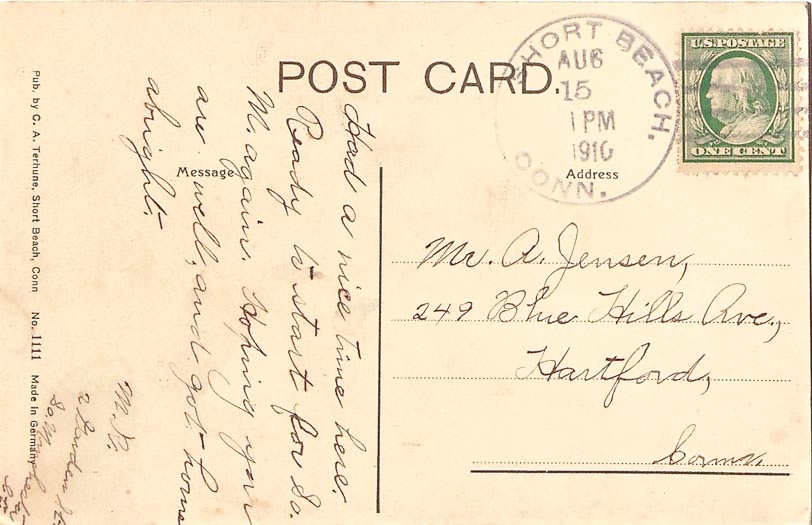 POST CARD.
SHORT BEACH,
AUG
15
1 PM
1910
CONN.
U.S. POSTAGE
ONE CENT
Message
Address
Had a nice time here.
Ready to start for So.
M. again. Hoping you
are well, and got home
alright.
M. P.
2 Garden St
So. M
Mr. A. Jensen,
249 Blue Hills Ave.,
Hartford,
Conn.
Pub. by C. A. Terhune, Short Beach, Conn No. 1111 Made in Germany